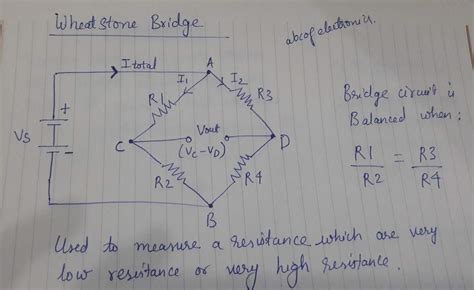 WheatStone Bridge
abcofelectronics.
I total
A
I1
I2
R1
R3
Bridge circuit is
Balanced when:
+
VS
-
C
Vout
(VC-VD)
D
R1/R2 = R3/R4
R2
R4
B
Used to measure a resistance which are very
low resistance or very high resistance.